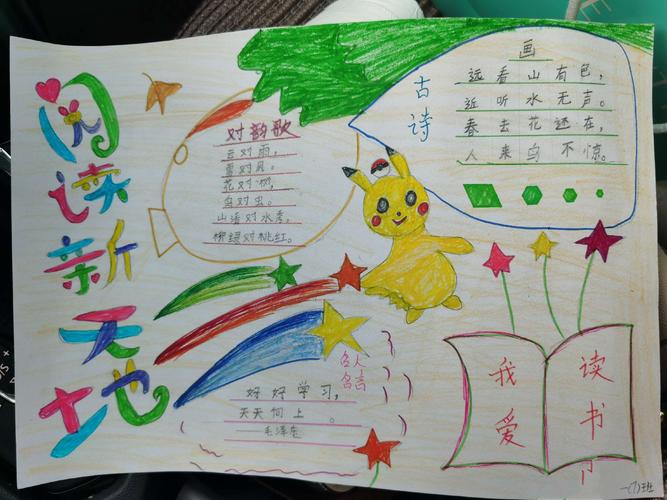 阅读新天地
对韵歌
云对雨，
雪对风。
花对树，
鸟对虫。
山清对水秀，
柳绿对桃红。
古诗
画
远看山有色，
近听水无声。
春去花还在，
人来鸟不惊。
名人
名言
好好学习，
天天向上。
毛泽东
我爱
读书
一(7)班